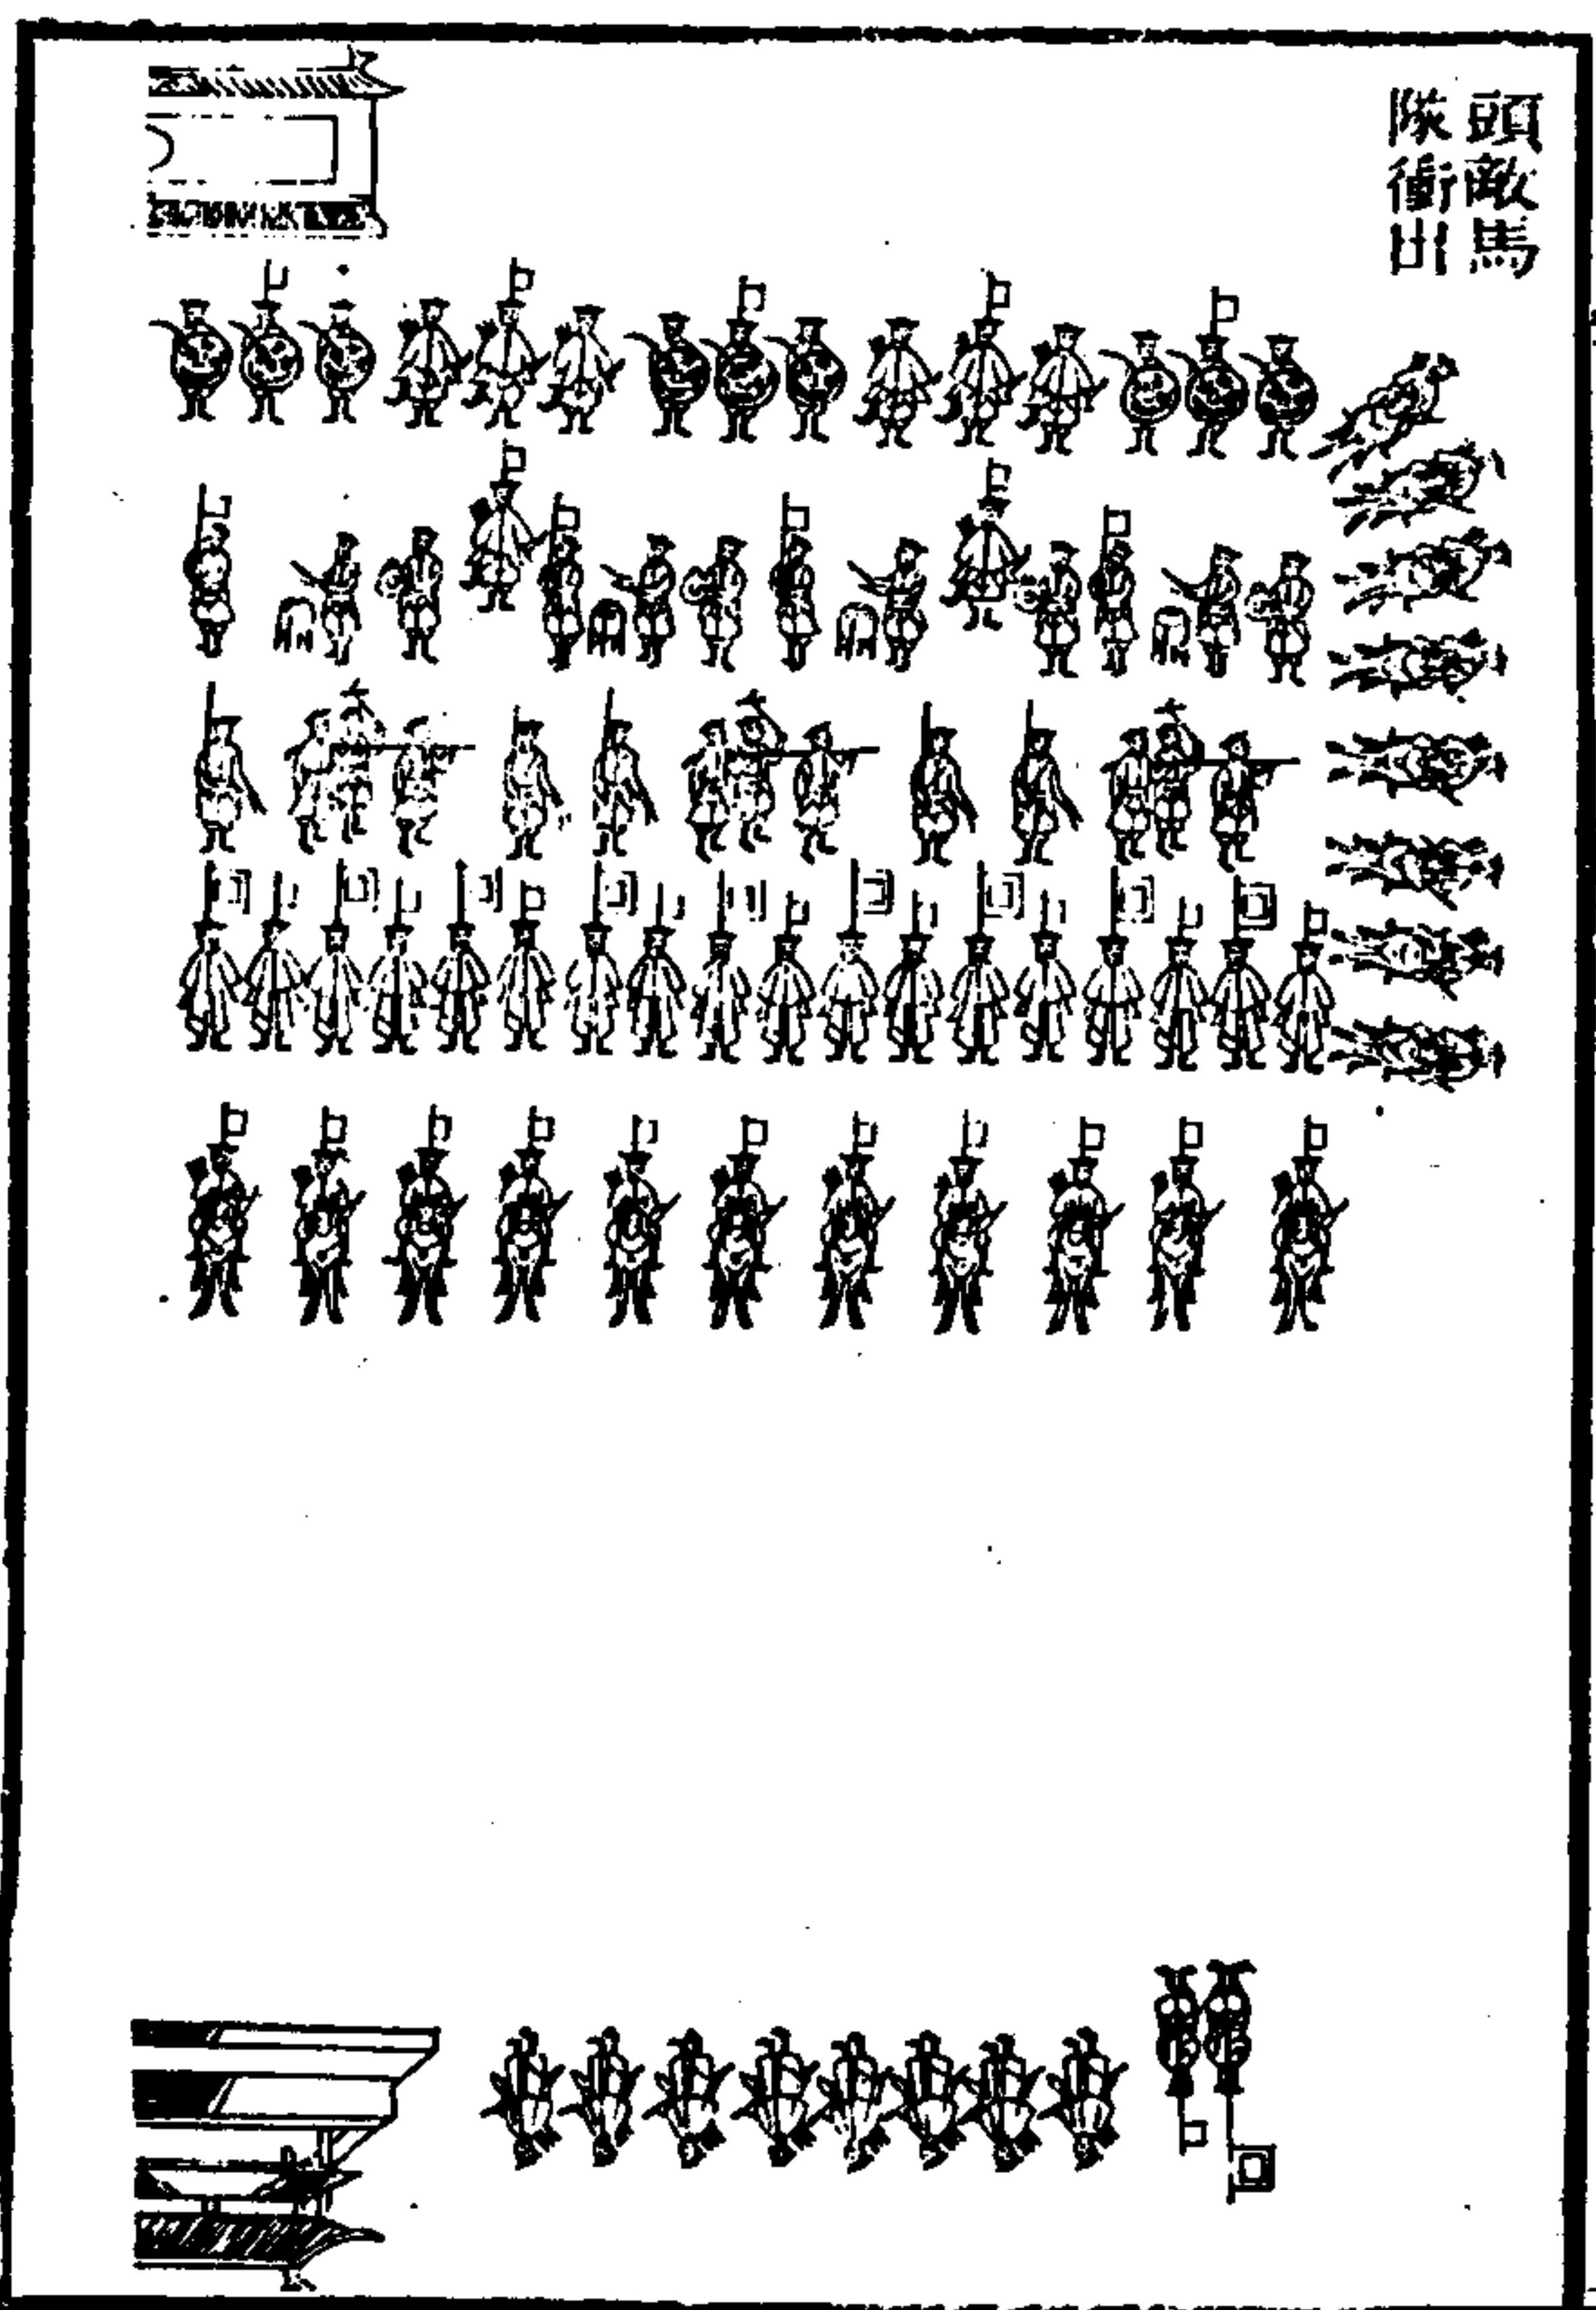 頭敵馬
隊衝出